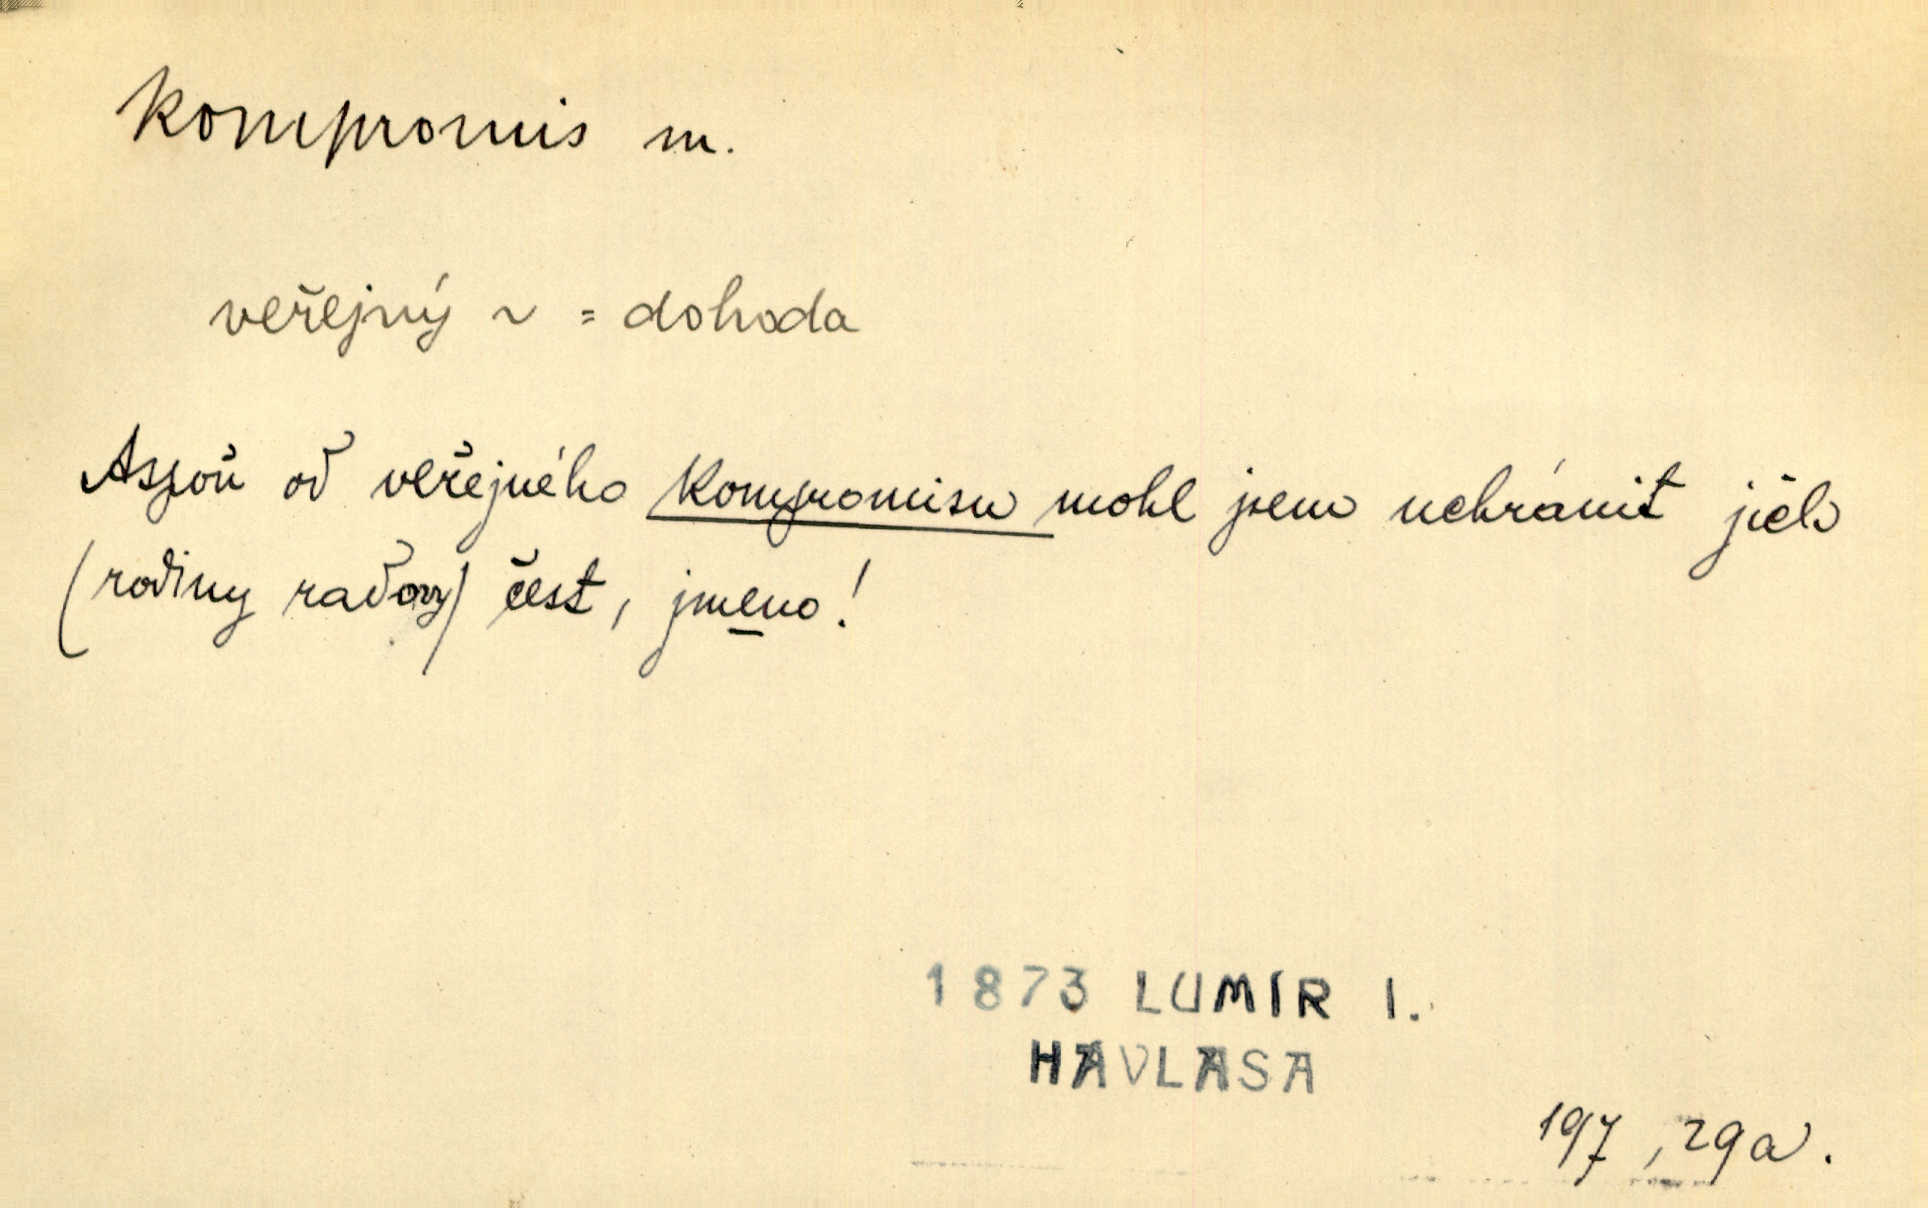 kompromis m.
veřejný ~ = dohoda
Aspoň od veřejného kompromisu mohl jsem uchránit jich
(rodiny radovy) čest, jmeno!
1873 LUMÍR I.
HAVLASA
197, 29a.